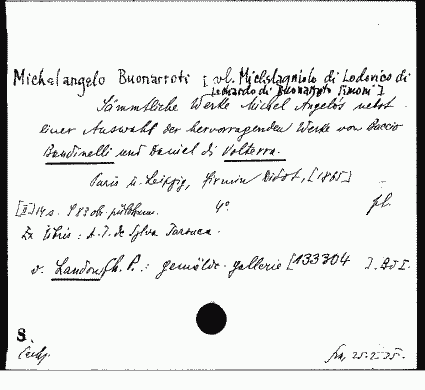 Michelangelo Buonarroti [vl. Michelagniolo di Lodovico di
Leonardo di Buonarroto Simoni]
Sämmtliche Werke Michel Angelo's nebst
einer Auswahl der hervorragenden Werke von Baccio
Bandinelli und Daniel di Volterra.
Paris u. Leipzig, Firmin Didot, [1865]
[II] 14 s. 4° pl.
Ex libris: A. J. da Sylva
v. Landon, Ch. P.: gemälde-gallerie [133304 ]. Bd I.
S.
25.2.35.